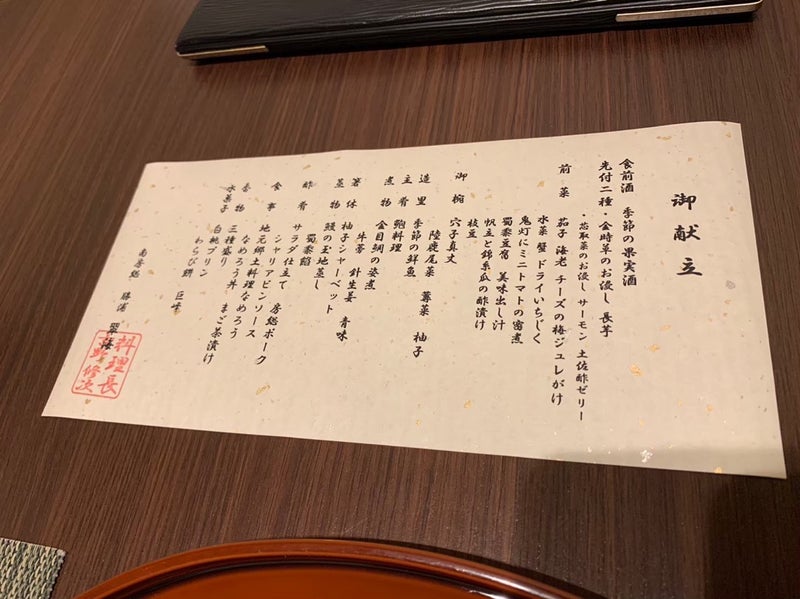 御献立
食前酒 季節の果実酒
先付二種・金時草のお浸し 長芋
・芯取菜のお浸し サーモン 土佐酢ゼリー
前菜 茄子 海老 チーズの梅ジュレがけ
水菜 蟹 ドライいちじく
鬼灯にミニトマトの蜜煮
蜀黍豆富 美味出し汁
帆立と錦糸瓜の酢漬け
枝豆
御椀 穴子真丈
陸鹿尾菜 蓴菜 柚子
造里 季節の鮮魚
主肴 鮑料理
煮物 金目鯛の姿煮
牛蒡 針生姜 青味
箸休 柚子シャーベット
蒸物 鰻の玉地蒸し
蜀黍餡
酢肴 サラダ仕立て 房総ポーク
シャリアピンソース
食事 地元郷土料理なめろう
なめろう丼 まご茶漬け
香物 三種盛り
水菓子 白桃プリン 巨峰
わらび餅
南房総 勝浦 翠海
料理長
野 修次